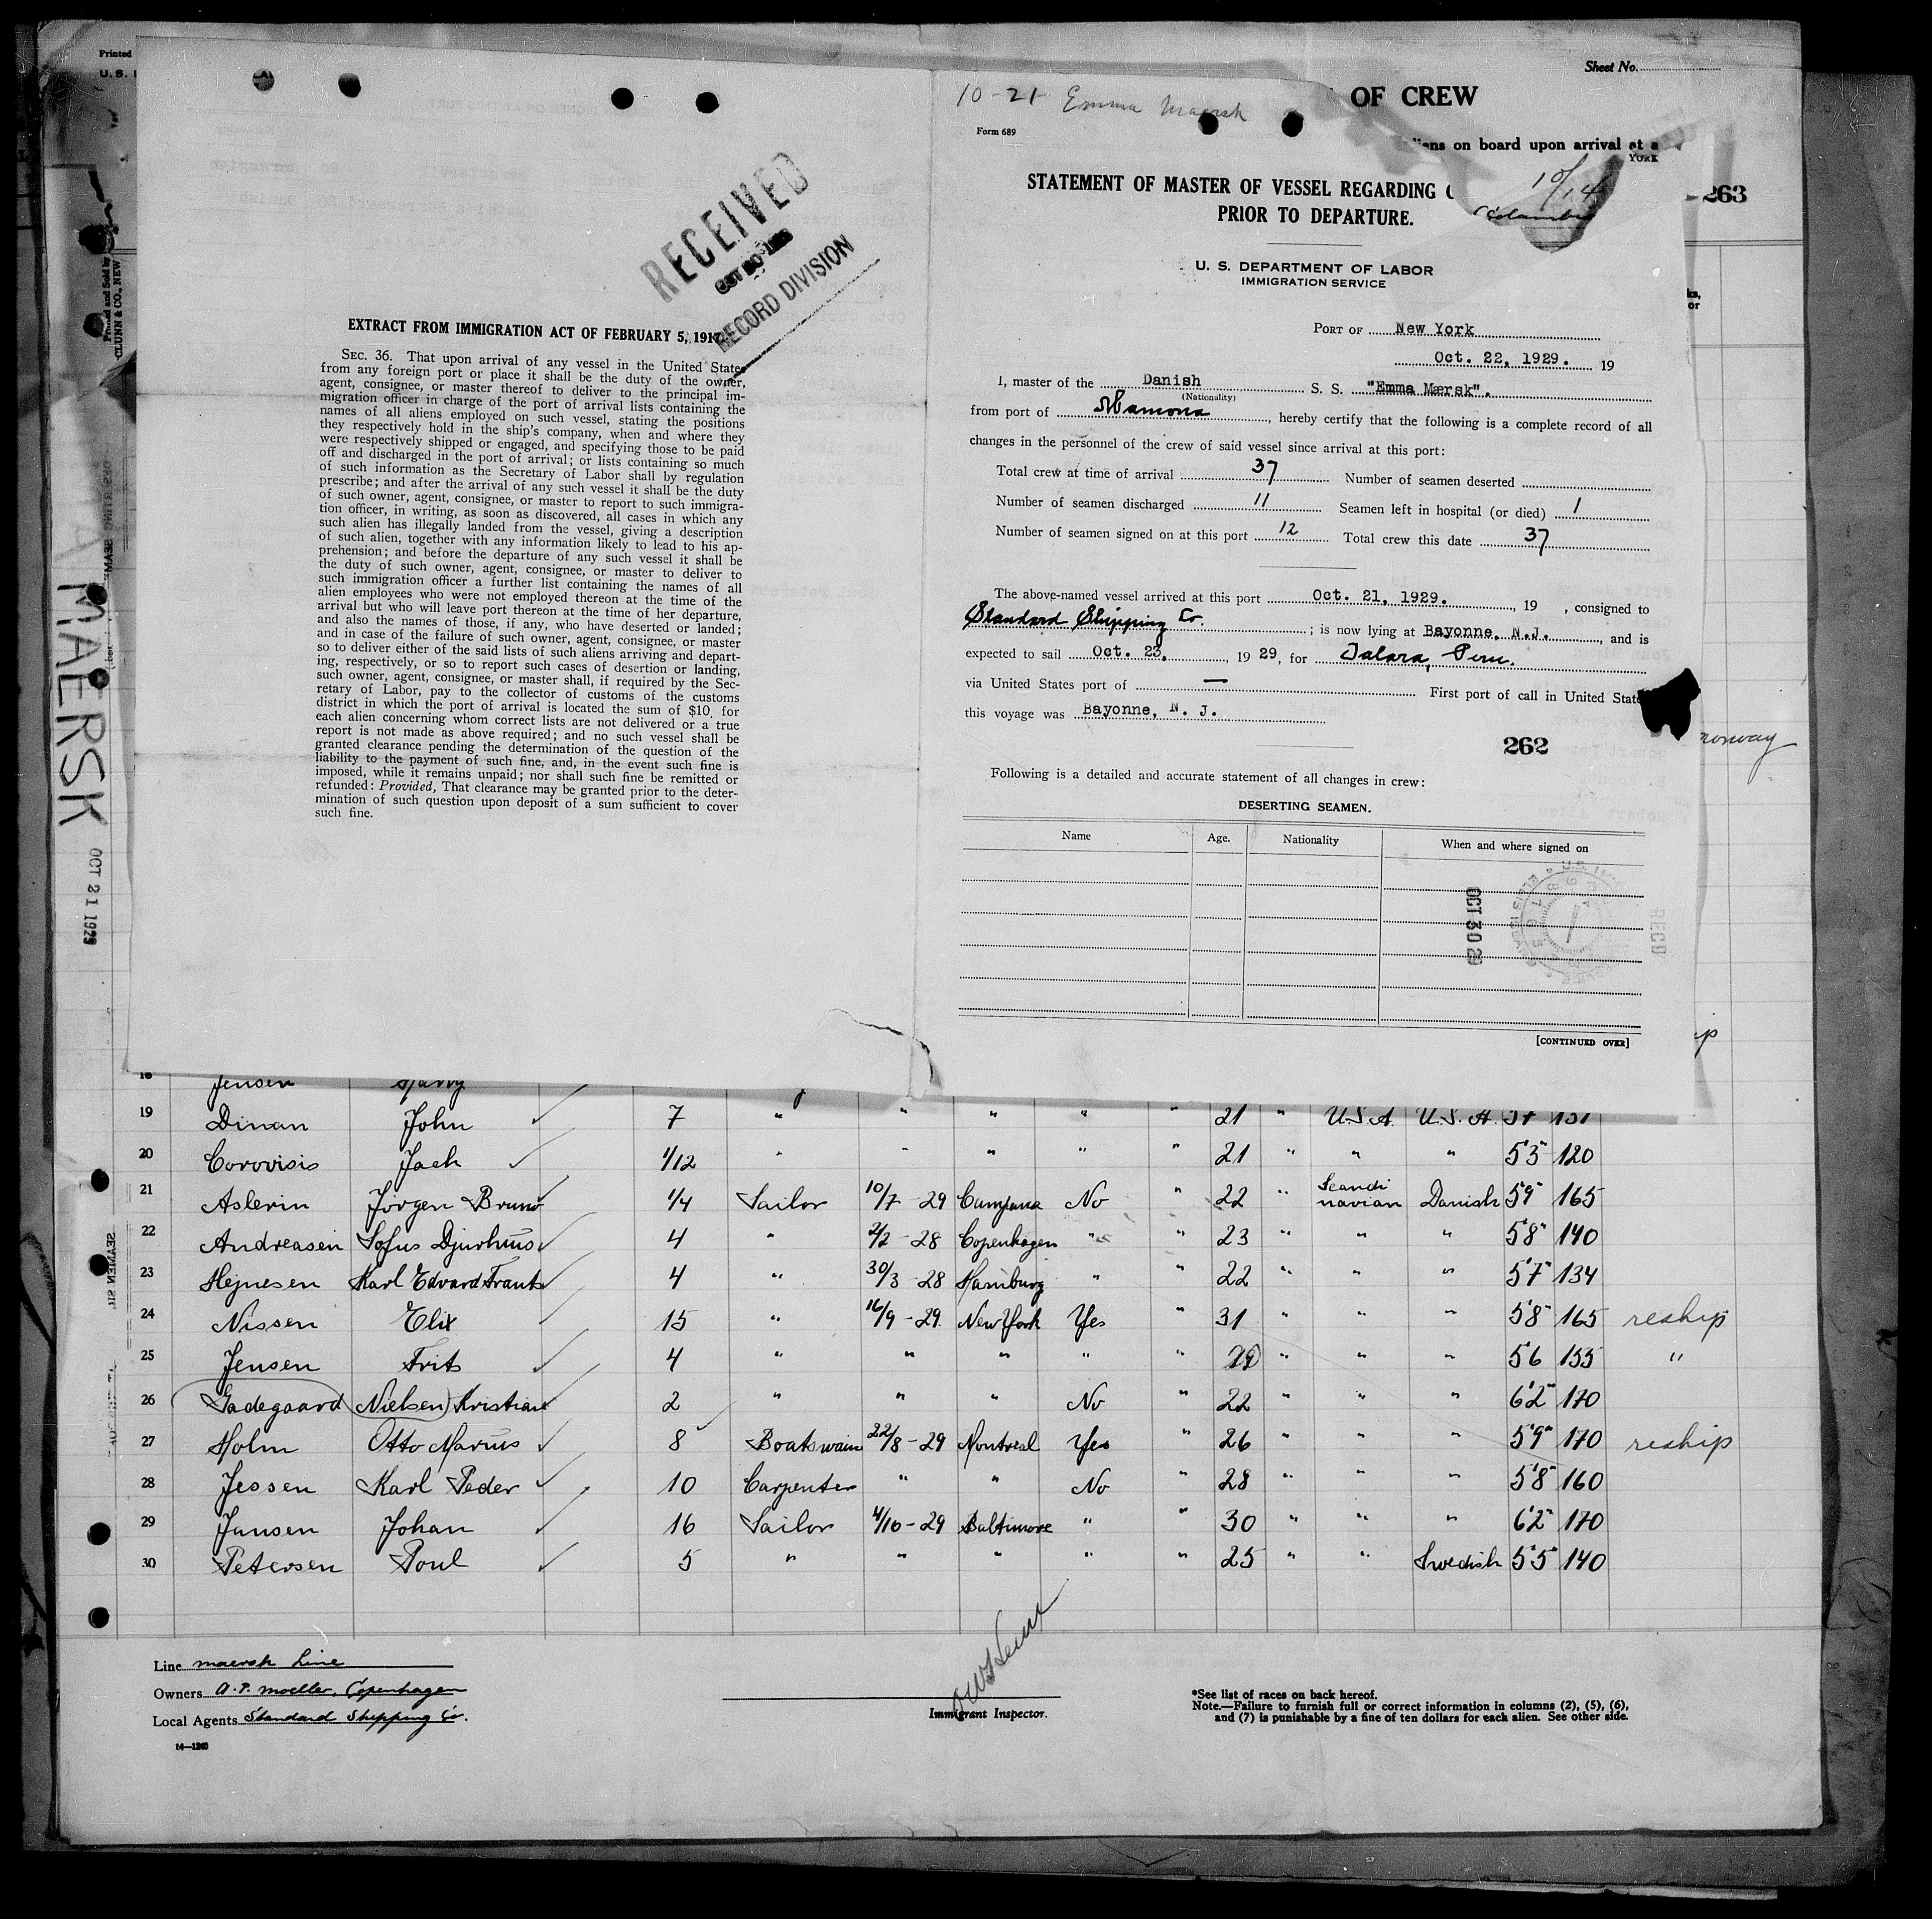 Printed
U. S.
Sheet No.
OF CREW
aliens on board upon arrival at a
YORK
10/14
Columbia
263
10-21 Emma Maersk
Form 689
STATEMENT OF MASTER OF VESSEL REGARDING
PRIOR TO DEPARTURE.
U. S. DEPARTMENT OF LABOR
IMMIGRATION SERVICE
PORT OF New York
Oct. 22, 1929. 19
I, master of the Danish S. S. "Emma Mærsk".
(Nationality)
from port of Mamona, hereby certify that the following is a complete record of all
changes in the personnel of the crew of said vessel since arrival at this port:
Total crew at time of arrival 37 Number of seamen deserted
Number of seamen discharged 11 Seamen left in hospital (or died) 1
Number of seamen signed on at this port 12 Total crew this date 37
The above-named vessel arrived at this port Oct. 21, 1929. , 19 , consigned to
Standard Shipping Co. ; is now lying at Bayonne, N.J. , and is
expected to sail Oct. 23, , 1929, for Talara, Peru.
via United States port of — First port of call in United State
this voyage was Bayonne, N. J.
262
Following is a detailed and accurate statement of all changes in crew:
DESERTING SEAMEN.
Name Age. Nationality When and where signed on
OCT 30 29
RECD
[CONTINUED OVER]
norway
RECEIVED
RECORD DIVISION
EXTRACT FROM IMMIGRATION ACT OF FEBRUARY 5, 1917.
SEC. 36. That upon arrival of any vessel in the United States
from any foreign port or place it shall be the duty of the owner,
agent, consignee, or master thereof to deliver to the principal im-
migration officer in charge of the port of arrival lists containing the
names of all aliens employed on such vessel, stating the positions
they respectively hold in the ship's company, when and where they
were respectively shipped or engaged, and specifying those to be paid
off and discharged in the port of arrival; or lists containing so much
of such information as the Secretary of Labor shall by regulation
prescribe; and after the arrival of any such vessel it shall be the duty
of such owner, agent, consignee, or master to report to such immigra-
tion officer, in writing, as soon as discovered, all cases in which any
such alien has illegally landed from the vessel, giving a description
of such alien, together with any information likely to lead to his ap-
prehension; and before the departure of any such vessel it shall be
the duty of such owner, agent, consignee, or master to deliver to
such immigration officer a further list containing the names of all
alien employees who were not employed thereon at the time of the
arrival but who will leave port thereon at the time of her departure,
and also the names of those, if any, who have deserted or landed;
and in case of the failure of such owner, agent, consignee, or master
so to deliver either of the said lists of such aliens arriving and depart-
ing, respectively, or so to report such cases of desertion or landing,
such owner, agent, consignee, or master shall, if required by the Sec-
retary of Labor, pay to the collector of customs of the customs
district in which the port of arrival is located the sum of $10 for
each alien concerning whom correct lists are not delivered or a true
report is not made as above required; and no such vessel shall be
granted clearance pending the determination of the question of the
liability to the payment of such fine, and, in the event such fine is
imposed, while it remains unpaid; nor shall such fine be remitted or
refunded: Provided, That clearance may be granted prior to the deter-
mination of such question upon deposit of a sum sufficient to cover
such fine.
MAERSK
OCT 21 1929
18 Jensen Harry
19 Dinan John 7 " " " " " 21 " U.S.A. U.S.A. 57 151
20 Corovisis Jack 1/12 " " " " " 21 " " " 5'3" 120
21 Aslerin Jörgen Bruno 1/4 Sailor 10/7-29 Campana No " 22 " Scandinavian Danish 5'9" 165
22 Andreasen Sofus Djurhuus 4 " 2/2-28 Copenhagen " " 23 " " " 5'8" 140
23 Hejnesen Karl Edvard Frants 4 " 30/3-28 Hamburg " " 22 " " " 5'7" 134
24 Nissen Elix 15 " 16/9-29. New York Yes " 31 " " " 5'8" 165 reship
25 Jensen Frits 4 " " " " " 29 " " " 5'6 155 "
26 Gadegaard (Nielsen) Kristian 2 " " " No " 22 " " " 6'2" 170
27 Holm Otto Marius 8 Boatswain 22/8-29 Montreal Yes " 26 " " " 5'9" 170 reship
28 Jessen Karl Peder 10 Carpenter " " No " 28 " " " 5'8" 160
29 Jansen Johan 16 Sailor 4/10-29 Baltimore " " 30 " " " 6'2" 170
30 Petersen Poul 5 " " " " " 25 " " Swedish 5'5" 140
Line maersk Line
Owners A. P. Moeller, Copenhagen
Local Agents Standard Shipping Co.
14—1240
Immigrant Inspector.
*See list of races on back hereof.
Note.—Failure to furnish full or correct information in columns (2), (5), (6),
and (7) is punishable by a fine of ten dollars for each alien. See other side.